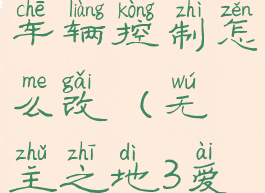 chē liàng kòng zhì zěn
车辆控制怎
me gǎi wú
么改（无
zhǔ zhī dì ài
主之地3爱